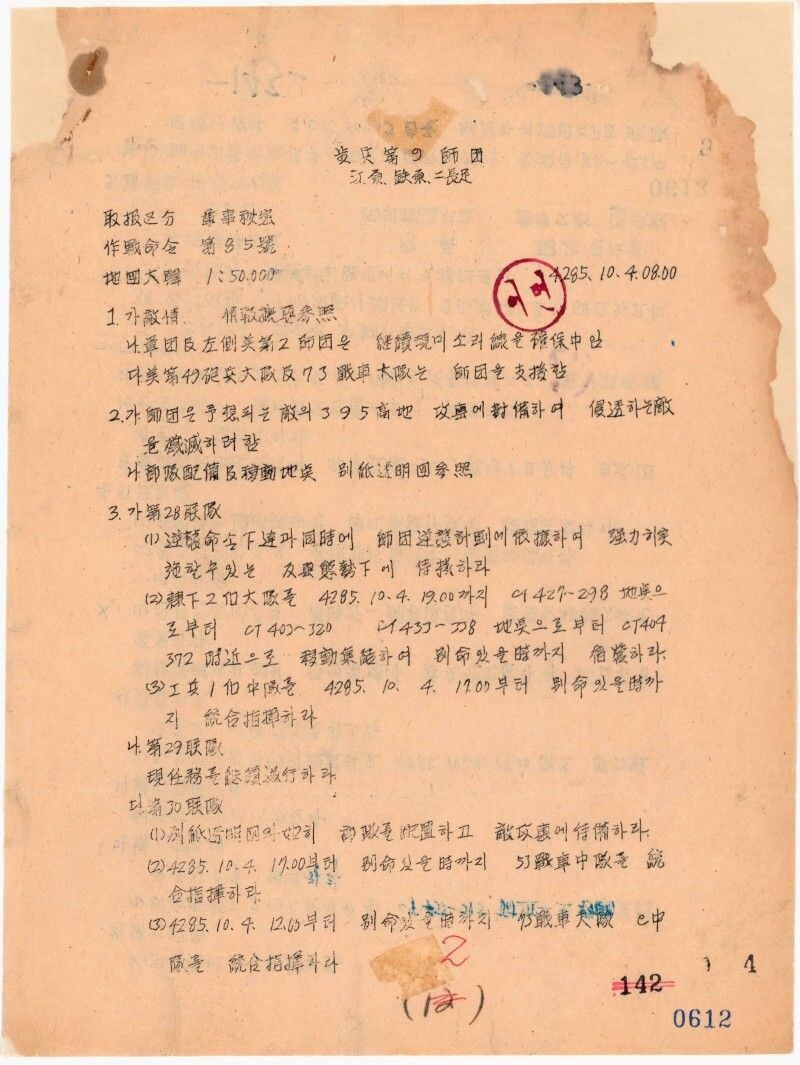 步兵第9師団
江原, 鉄原, 二長足
取扱区分 軍事秘密
作戰命令 第85號
地図大韓 1:50.000
이면
4285. 10. 4. 08.00
1. 가 敵情. 情報 參照
나. 軍团및左側美第2師団은 継續現미소리線을 確保中임
다. 美第49砲兵大隊및73戰車大隊는 師団을支援함
2. 가 師団은予想되는敵의395高地 攻擊에對備하여 侵透하는敵
을殲滅하려함
나. 部隊配備및移動地點 別紙透明図參照
3. 가 第28联隊
(1) 逆襲命令下達과同時에 師団逆襲計劃에依據하여 强力히実
施할수있는 態勢下에 待機하라
(2) 隸下2個大隊를 4285. 10. 4. 19.00까지 CT427~298 地點으
로부터 CT403~320 CT433~338 地點으로부터 CT404
372 附近으로 移動集結하여 別命있을時까지 하라.
(3) 工兵1個中隊를 4285. 10. 4. 17.00부터 別命있을時까
지 統合指揮하라
나. 第29联隊
現任務를継續遂行하라
다. 第30联隊
(1) 別紙透明図와如히 部隊를配置하고 敵攻擊에待備하라.
(2) 4285. 10. 4. 17.00부터 別命있을時까지 53戰車中隊를 統
合指揮하라
(3) 4285. 10. 4. 12.00부터 別命있을時까지 73戰車大隊 C中
隊를 統合指揮하라
2
142
4
0612